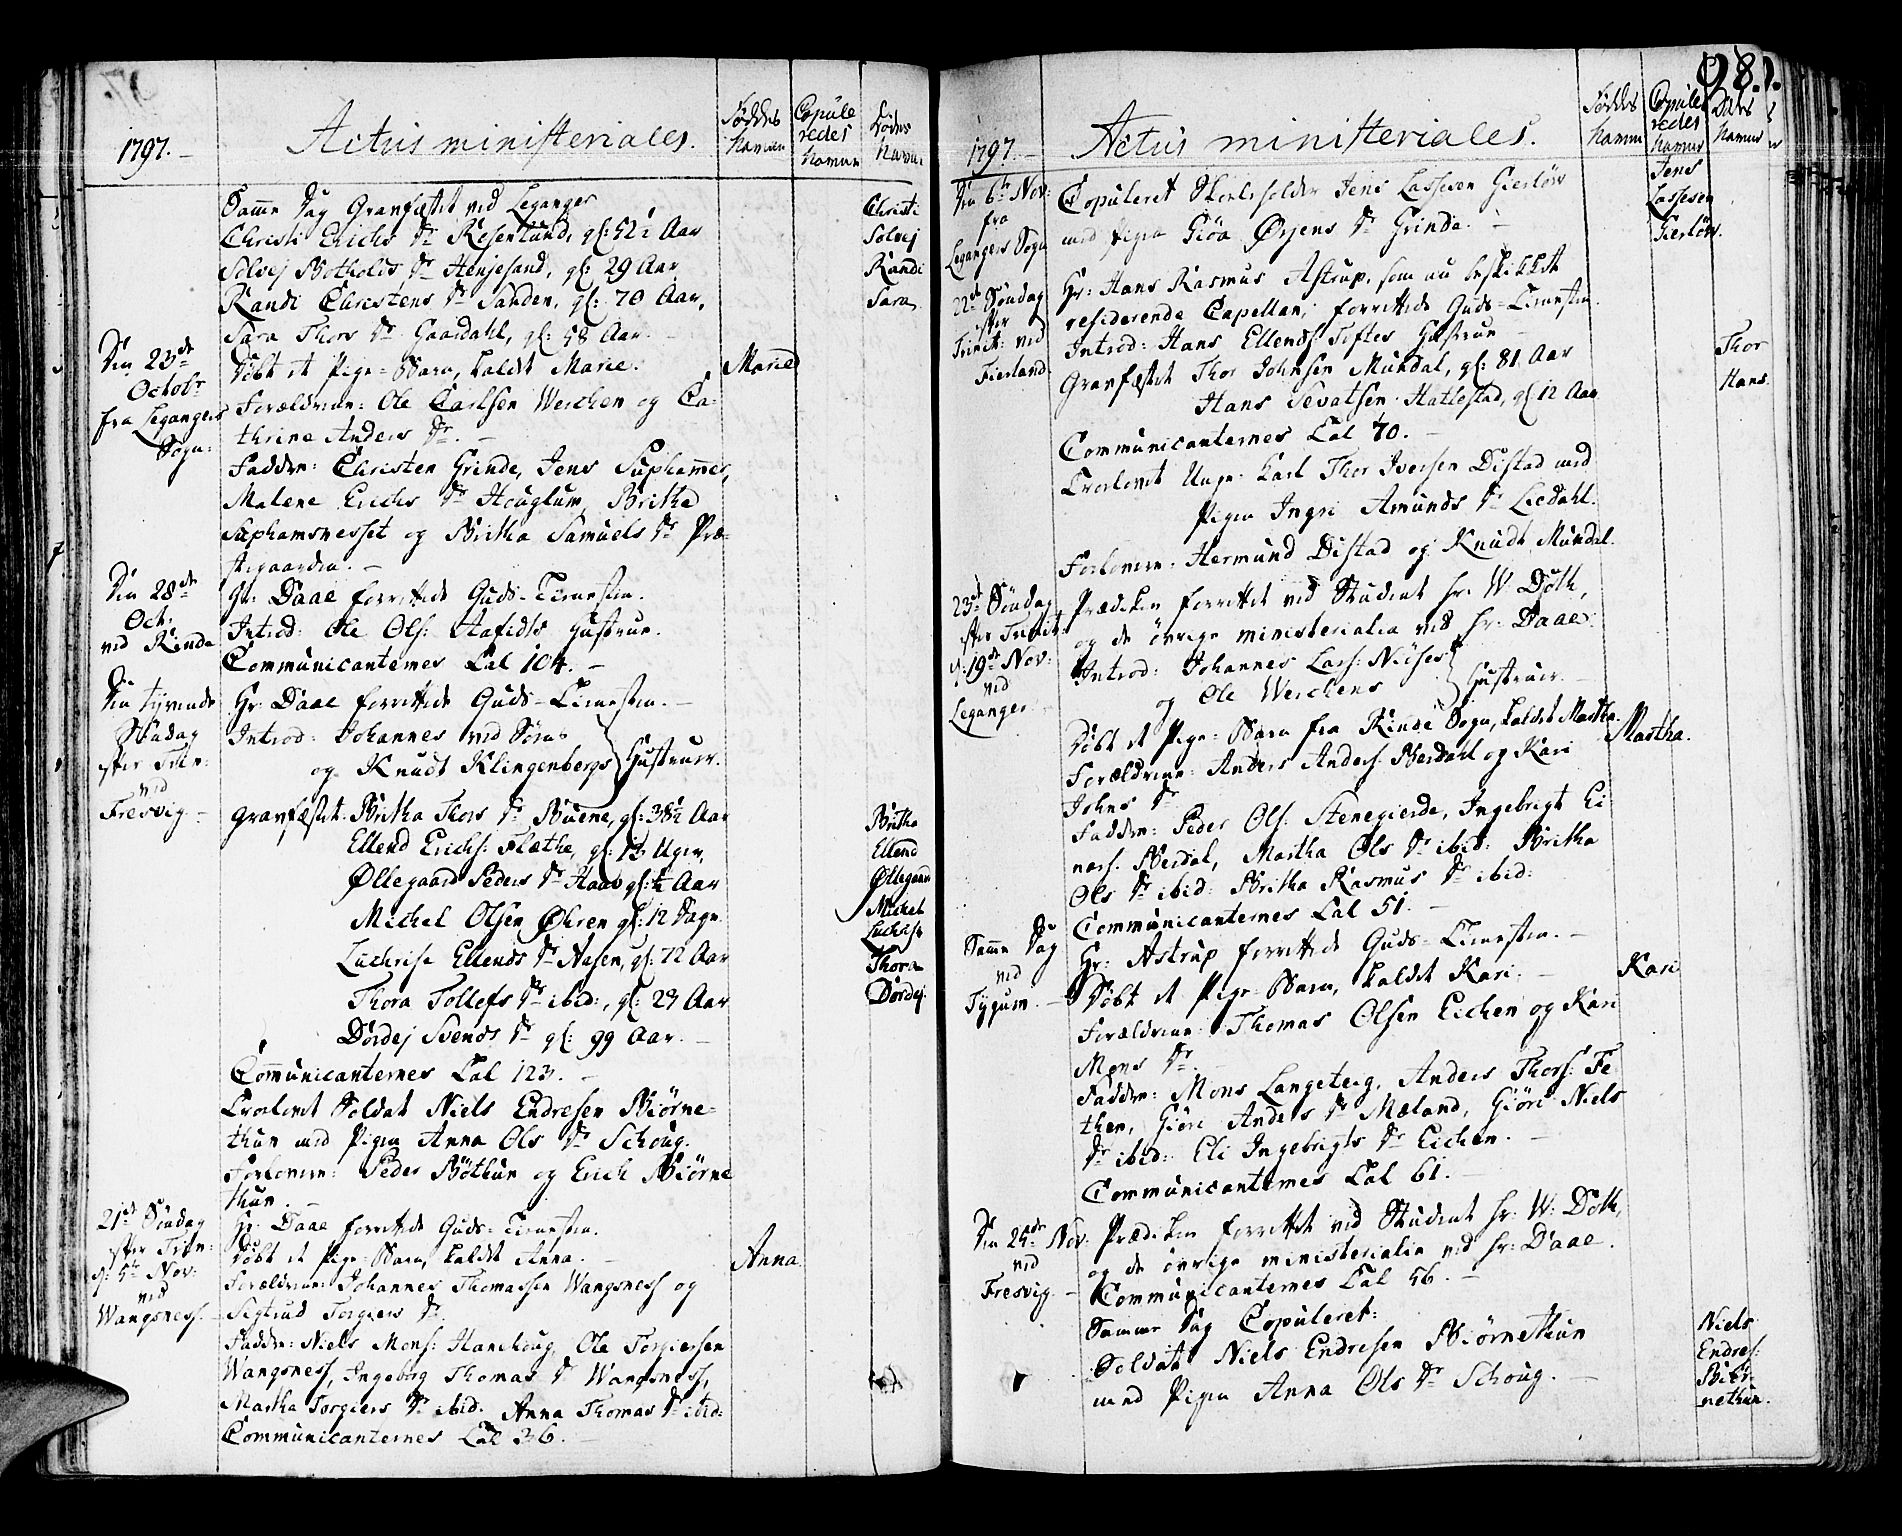 1797. Actus ministeriales. Føddes Navne Copuleredes Navne Dødes Navne
Samme Dag Gravfæstet ved Leganger
Christi Erichs Dr Rosenlund, gl: 52½ Aar Christi
Solvej Botholds Dr Henjesand, gl: 29 Aar Solvej
Randi Christens Dr Sanden, gl: 70 Aar, Randi
Sara Thors Dr Gaardahl, gl: 58 Aar. Sara
Den 23de Octobr fra Legangers Sogn:
Døbt et Pige-Barn, kaldet Marie. Marie
Forældrene: Ole Carlsen Werchen og Ca-
thrine Anders Dr.
Faddere: Christen Grinde, Jens Saphammer,
Malene Erichs Dr Houglum, Britha
Saphamsnesset og Britha Samuels Dr Præ-
stegaarden.
Den 28de Oct. ved Rinde
Hr: Daae forrettede Guds-Tienesten.
Introd: Ole Ols: Aafidts Hustrue.
Communicanternes Tal 104.
Den tyvende Søndag efter Trin: ved Fresvig
Hr: Daae forrettede Guds-Tienesten.
Introd: Johannes ved Søens
og Knudt Klingenbergs Hustruer.
Gravfæstet: Britha Thors Dr Buene, gl: 38½ Aar Britha
Ellend Erichs: Flæthe, gl: 13 Uger, Ellend
Øllegaard Peders Dr Haab gl: ½ Aar Øllegaard
Michel Olsen Øhren gl: 12 Dage Michel
Luchrise Ellends Dr Aasen, gl: 72 Aar Luchrise
Thora Tollefs Dr ibid:, gl: 23 Aar Thora
Dordej Svends Dr gl: 99 Aar. Dordej.
Communicanternes Tal 123.
Trolovet Soldat Niels Endresen Biørne-
thun med Pigen Anna Ols Dr Schoug.
Forlovere: Peder Bøthun og Erich Biørne
thun.
21de Søndag efter Trin: d: 5te Nov: ved Wangsness.
Hr: Daae forrettede Guds-Tienesten.
Døbt et Pige-Barn, kaldet Anna. Anna.
Forældrene: Johannes Thomassen Wangsness og
Sigtrud Torgiers Dr
Faddere: Niels Mons: Hanehoug, Ole Torgiersen
Wangsness, Ingeborg Thomas Dr Wangsness,
Martha Torgiers Dr ibid. Anna Thomas Dr ibid:
Communicanternes Tal 36.
98.
1797. Actus ministeriales. Føddes Navne Copuleredes Navne Dødes Navne
Den 6te Nov: fra Legangers Sogn
Copuleret Skoleholder Jens Lassesen Gierløw Jens Lassesen Gierløw.
med Pigen Giøa Ørjens Dr Grinde.
22de Søndag efter Trinit: ved Fierland
Hr: Hans Rasmus Astrup, som nu beskikket
residerende Capellan, forrettede Guds-Tienesten.
Introd: Hans Ellends: Toftes Hustrue
Gravfæstet Thor Johnsen Mundal, gl: 81 Aar Thor
Hans Sevatsen Hatlestad, gl: 12 Aar Hans.
Communicanternes Tal 70.
Trolovet Unge-Karl Thor Iversen Distad med
Pigen Ingri Amunds Dr Liedahl.
Forlovere: Hermund Distad og Knudt Mundal.
23de Søndag efter Trinit: d: 19de Nov: ved Leganger
Prædiken forrettet ved Student Hr: W. Døth,
og de øvrige ministerialia ved Hr: Daae.
Introd: Johannes Lars: Niises
og Ole Werchens Hustruer.
Døbt et Pige-Barn fra Rinde Sogn, kaldet Martha. Martha.
Forældrene: Anders Anders: Berdahl og Kari
Johns Dr
Faddere: Peder Ols: Stenegierde, Ingebrigt Ei
nars: Berdal, Martha Ols Dr ibid: Britha
Ols Dr ibid: Britha Rasmus Dr ibid:
Communicanternes Tal 51.
Samme Dag ved Tygum.
Hr: Astrup forrettede Guds-Tienesten.
Døbt et Pige-Barn, kaldet Kari. Kari
Forældrene: Thomas Olsen Eichen og Kari
Mons Dr.
Faddere: Mons Langeteig, Anders Thors: Fe
then, Giøri Anders Dr Mæland, Giøri Niels
Dr ibid: Eli Ingebrigts Dr Eichen.
Communicanternes Tal 61.
Den 25de Nov: ved Fresvig.
Prædiken forrettet ved Student Hr: W: Døth,
og de øvrige ministerialia ved Hr: Daae.
Communicanternes Tal 56.
Samme Dag Copuleret:
Soldat Niels Endresen Biørnethun Niels Endres: Biør-
med Pigen Anna Ols Dr Schoug. nethun.